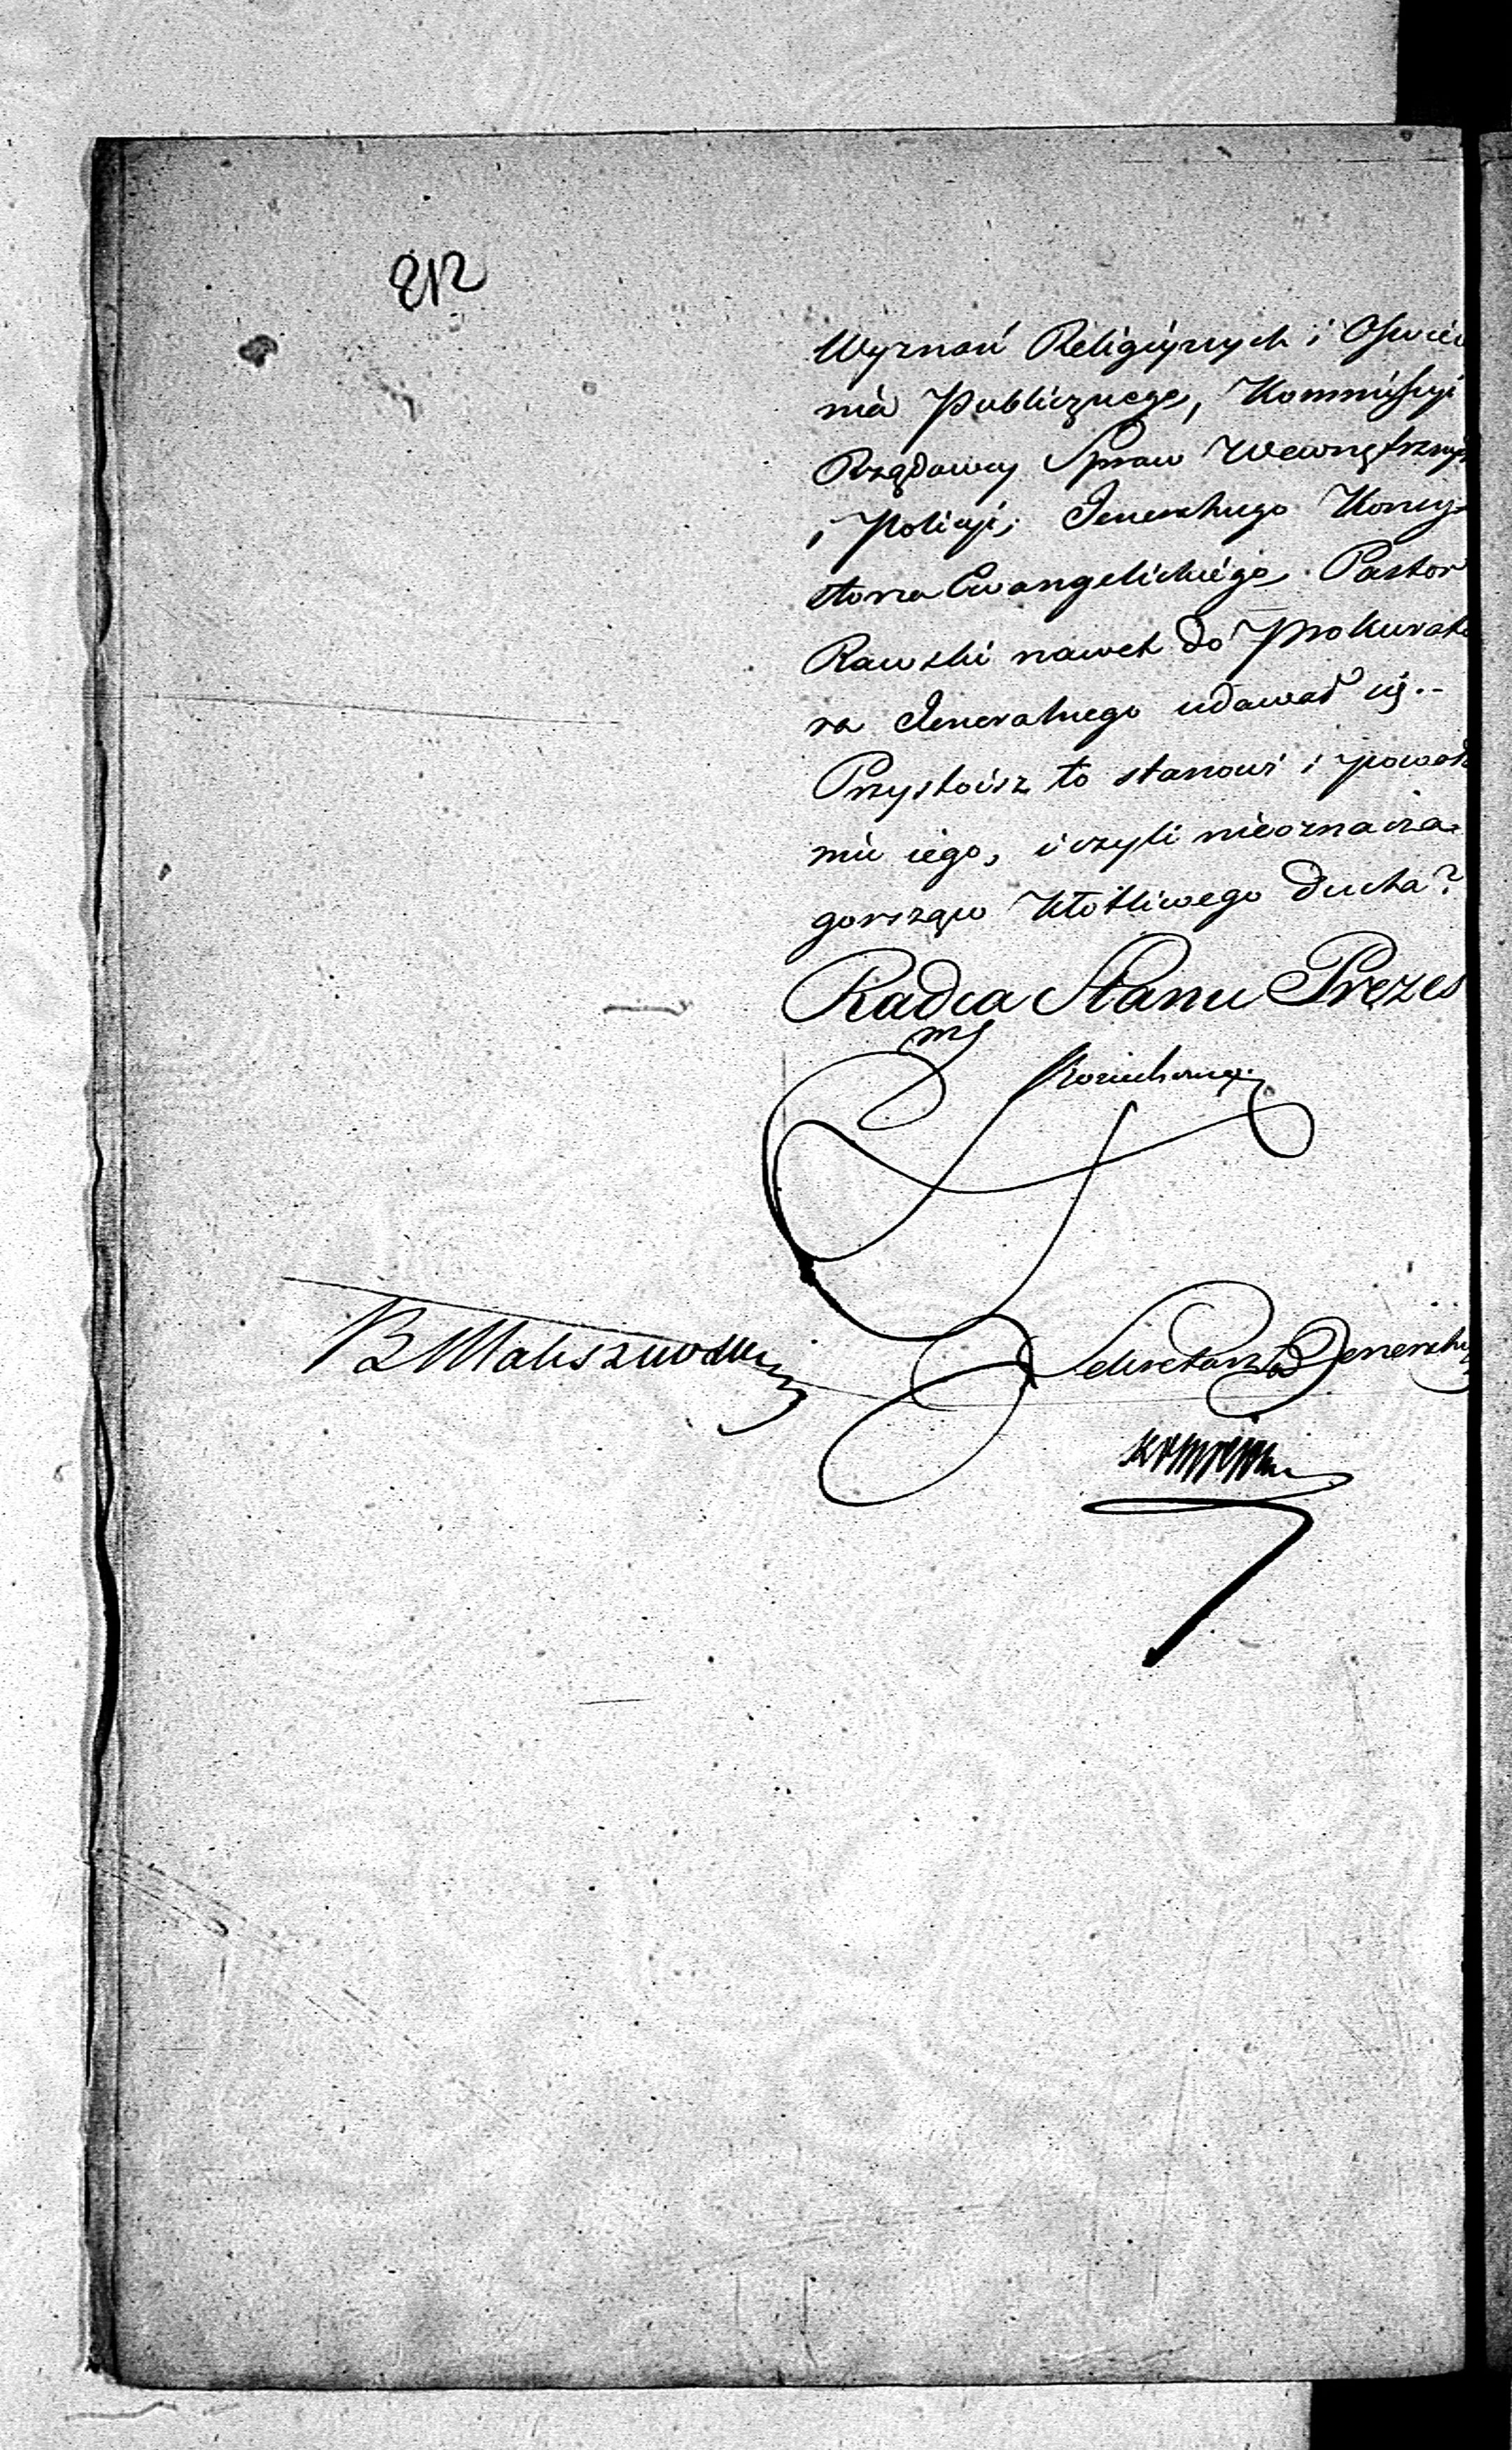 212
Wyznań Religiynych i Oświec
nia Publicznego, Kommissyi
Rządowey Spraw Wewnętrzny
i Policyi, Jeneralnego Konsy
storza Ewangelickiego. Pastor
Rawski nawet do Prokurato
ra Jeneralnego udawał się.
Przystoisz to stanowi i powoła
niu iego, i czyli nieoznacza
gorsząco kłótliwego ducha?
Radca Stanu Prezes
B Maliszewski
Sekretarz Jeneralny